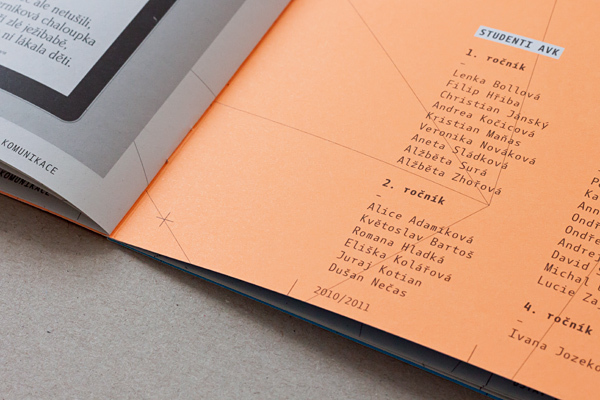 ale netušili,
perníková chaloupka
zlé ježibabě,
ní lákala děti.
KOMUNIKACE
KOMUNIKACE
STUDENTI AVK
1. ročník
–
Lenka Bollová
Filip Hřiba
Christian Jánský
Andrea Kočicová
Kristian Maňas
Veronika Nováková
Aneta Sládková
Alžběta Surá
Alžběta Zhořová
2. ročník
–
Alice Adamíková
Květoslav Bartoš
Romana Hladká
Eliška Kolářová
Juraj Kotian
Dušan Nečas
2010/2011
Ann
Ondř
Ondře
Andrej
David S
Michal
Lucie Za
4. ročník
–
Ivana Jozeko